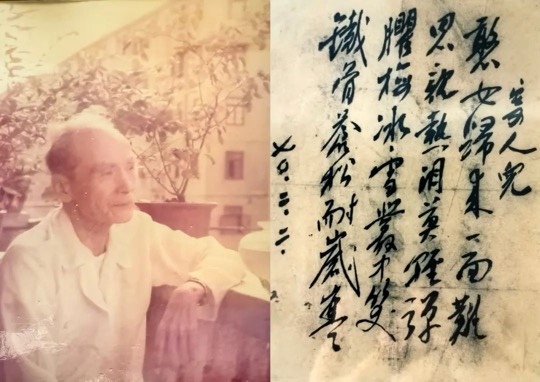 寄人兒
憨女歸來一面難
思親熱淚莫輕彈
臞梅冰雪叢中笑
鐵骨蒼松耐歲寒
七〇.二.二.